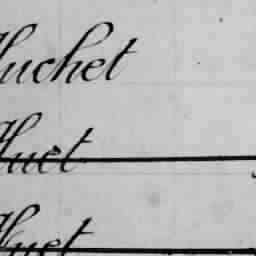 Huchet
Huet
Huet